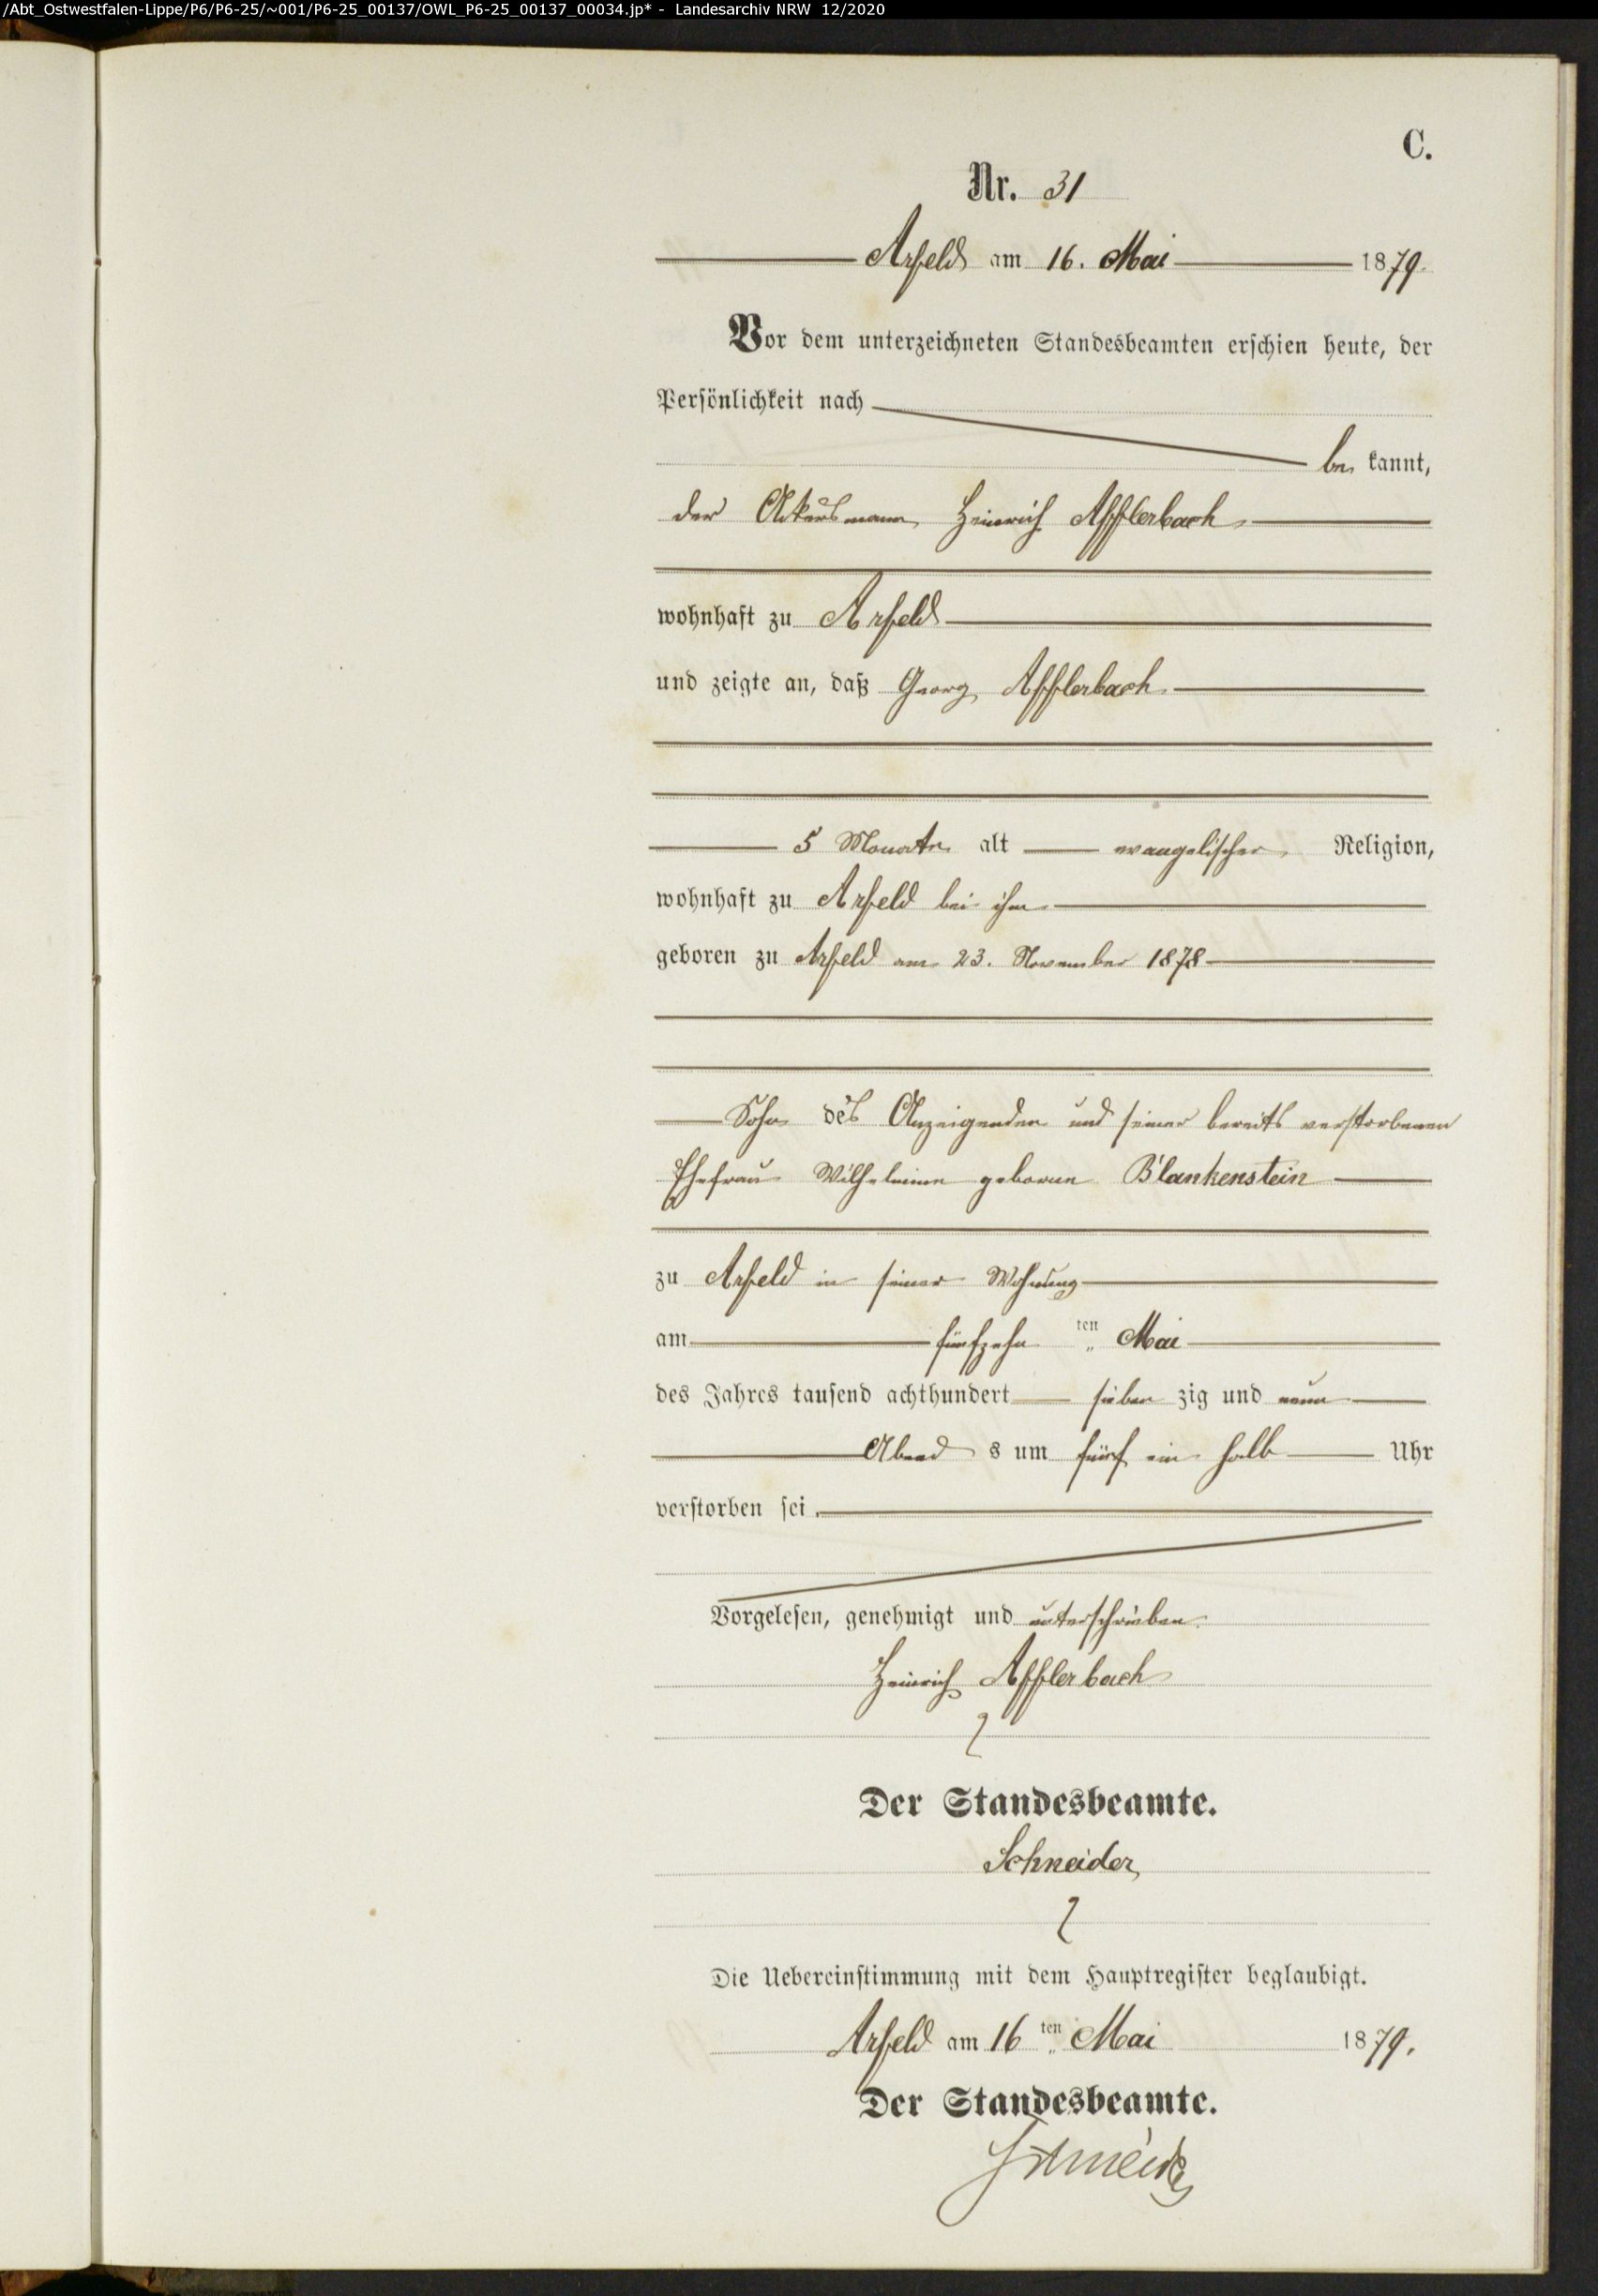 /Abt_Ostwestfalen-Lippe/P6/P6-25/~001/P6-25_00137/OWL_P6-25_00137_00034.jp* - Landesarchiv NRW 12/2020
C.
Nr. 31
Arfeld am 16. Mai 1879.
Vor dem unterzeichneten Standesbeamten erschien heute, der
Persönlichkeit nach
be kannt,
der Ackersmann Heinrich Afflerbach
wohnhaft zu Arfeld
und zeigte an, daß Georg Afflerbach
5 Monate alt evangelischer Religion,
wohnhaft zu Arfeld bei ihm
geboren zu Arfeld am 23. November 1878
Sohn des Anzeigenden und seiner bereits verstorbenen
Ehefrau Wilhelmine geborene Blankenstein
zu Arfeld in seiner Wohnung
am fünfzehn ten Mai
des Jahres tausend achthundert sieben zig und neun
Abend s um fünf ein halb Uhr
verstorben sei.
Vorgelesen, genehmigt und unterschrieben.
Heinrich Afflerbach
Der Standesbeamte.
Schneider
Die Uebereinstimmung mit dem Hauptregister beglaubigt.
Arfeld am 16 ten Mai 1879.
Der Standesbeamte.
Schneider